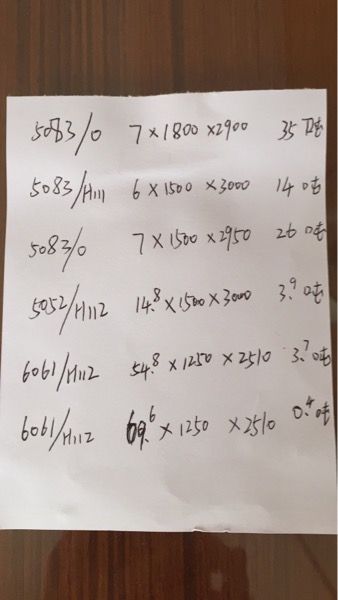 5083/0 7×1800×2900 35吨
5083/H111 6×1500×3000 14吨
5083/0 7×1500×2950 26吨
5052/H112 14.8×1500×3000 3.9吨
6061/H112 54.8×1250×2510 3.7吨
6061/H112 69.6×1250×2510 0.4吨